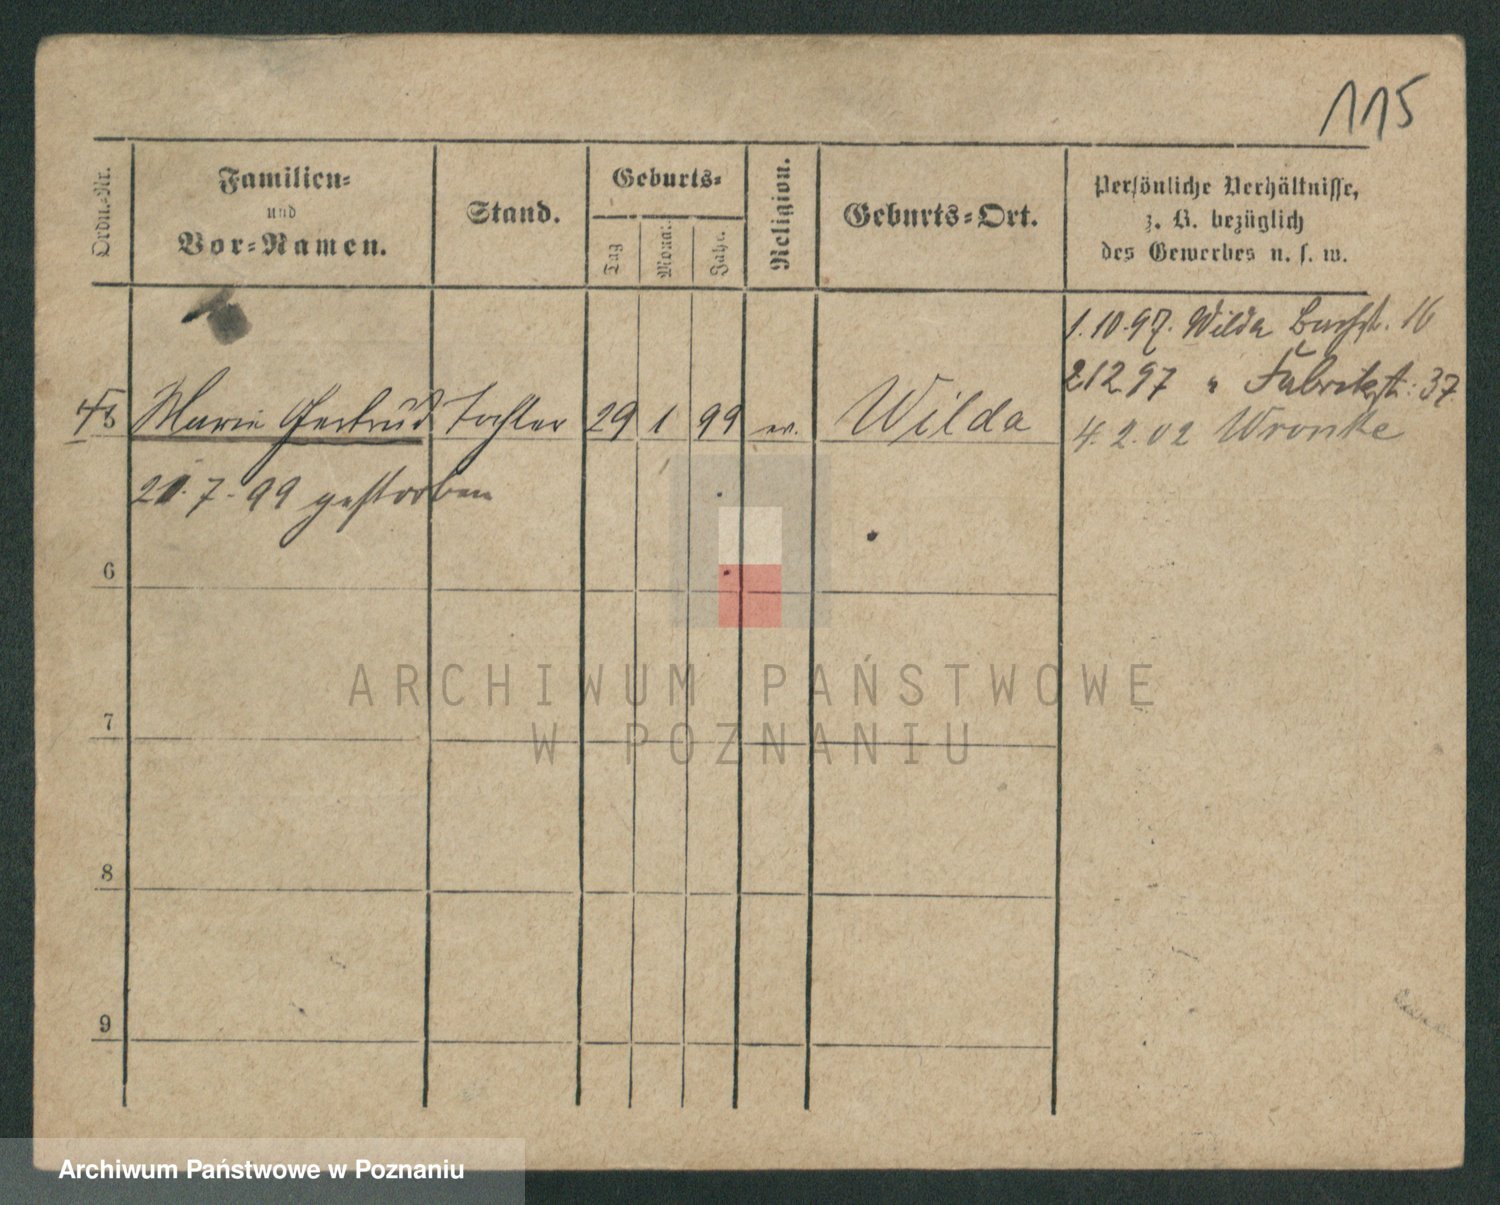 115
Ordn.-Nr.
Familien-
und
Vor-Namen.
Stand.
Geburts-
Tag
Monat
Jahr.
Religion.
Geburts-Ort.
Persönliche Verhältnisse,
z. B. bezüglich
des Gewerbes u. s. w.
1.10.97. Wilda Bachst. 16
21297 " Fabrikstr. 37
5 Marie Gertrud Tochter 29 1 99 ev. Wilda
4.2.02 Wronke
21.7.99 gestorben
6
7
8
9
ARCHIWUM PAŃSTWOWE
W POZNANIU
Archiwum Państwowe w Poznaniu